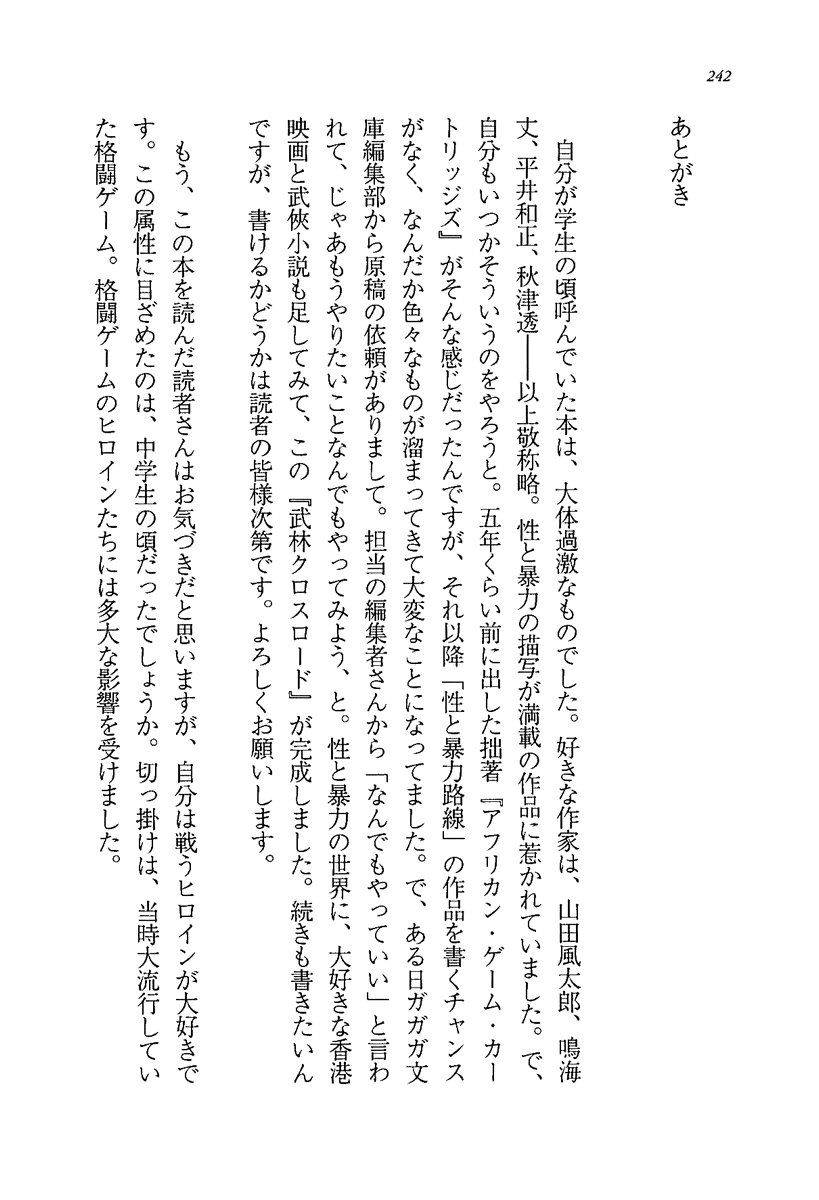 242
あとがき
自分が学生の頃呼んでいた本は、大体過激なものでした。好きな作家は、山田風太郎、鳴海
丈、平井和正、秋津透――以上敬称略。性と暴力の描写が満載の作品に惹かれていました。で、
自分もいつかそういうのをやろうと。五年くらい前に出した拙著『アフリカン・ゲーム・カー
トリッジズ』がそんな感じだったんですが、それ以降「性と暴力路線」の作品を書くチャンス
がなく、なんだか色々なものが溜まってきて大変なことになってました。で、ある日ガガガ文
庫編集部から原稿の依頼がありまして。担当の編集者さんから「なんでもやっていい」と言わ
れて、じゃあもうやりたいことなんでもやってみよう、と。性と暴力の世界に、大好きな香港
映画と武俠小説も足してみて、この『武林クロスロード』が完成しました。続きも書きたいん
ですが、書けるかどうかは読者の皆様次第です。よろしくお願いします。
もう、この本を読んだ読者さんはお気づきだと思いますが、自分は戦うヒロインが大好きで
す。この属性に目ざめたのは、中学生の頃だったでしょうか。切っ掛けは、当時大流行してい
た格闘ゲーム。格闘ゲームのヒロインたちには多大な影響を受けました。